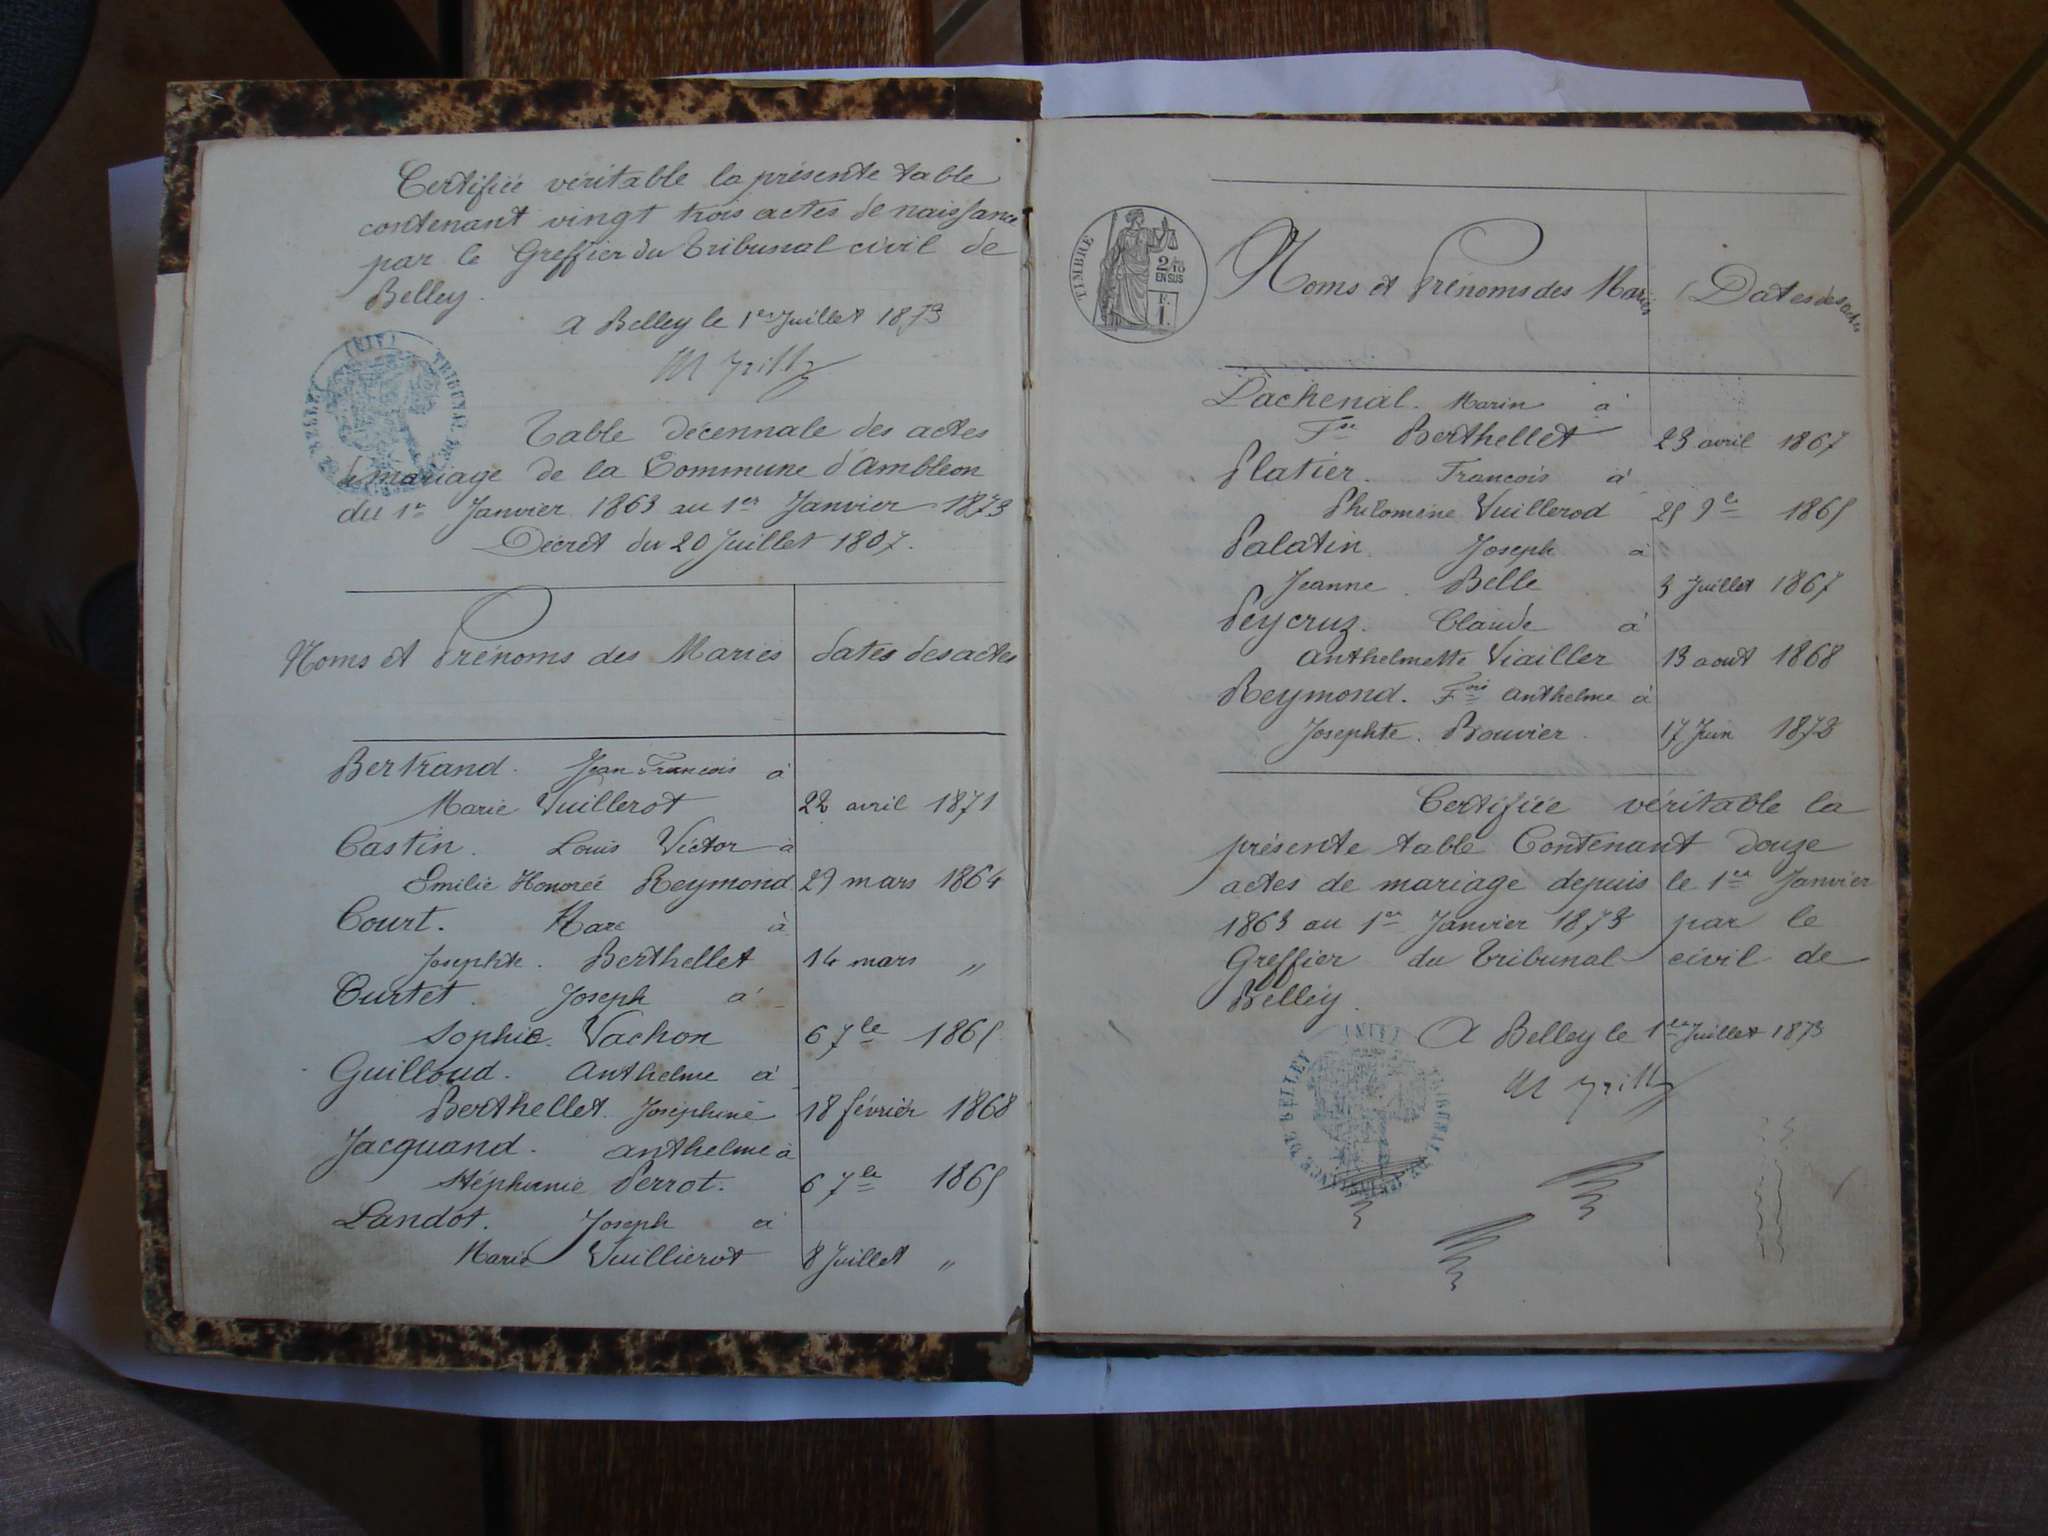 Certifiée véritable la présente table
contenant vingt trois actes de naissance
par le Greffier du Tribunal civil de
Belley.
a Belley le 1er Juillet 1873
TRIBUNAL DE
DE BELLEY
(AIN)
Table décennale des actes
de mariage de la Commune d'Ambléon
du 1er Janvier 1863 au 1er Janvier 1873
Décret du 20 Juillet 1807.
Noms et Prénoms des Mariés dates des actes
Bertrand. Jean François à
Marie Vuillerot 22 avril 1871
Castin. Louis Victor à
Emilie Honorée Reymond 29 mars 1864
Court. Marc à
Josephte. Berthellet 14 mars "
Curtet. Joseph à
Sophie. Vachon 6 7bre 1865
Guilloud. Anthelme à
Berthellet. Joséphine 18 février 1868
Jacquand. anthelme à
Stéphanie Perrot. 6 7bre 1865
Landot. Joseph à
Marie Vuillierot 8 Juillet "
TIMBRE
2/10
EN SUS
F.
1.
Noms et Prénoms des Mariés Dates des actes
Lachenal. Marin à
Fse Berthellet 23 avril 1867
Platier. François à
Philomène Vuillerod 25 9bre 1865
Palatin. Joseph à
Jeanne. Belle 3 Juillet 1867
Peycruz. Claude à
Anthelmette Viailler 13 aout 1868
Reymond. Fois Anthelme à
Josephte. Bouvier. 17 Juin 1872
Certifiée véritable la
présente table Contenant douze
actes de mariage depuis le 1er Janvier
1863 au 1er Janvier 1873 par le
Greffier du Tribunal civil de
Belley.
A Belley le 1er Juillet 1873
TRIBUNAL DE
INSTANCE DE BELLEY
(AIN)